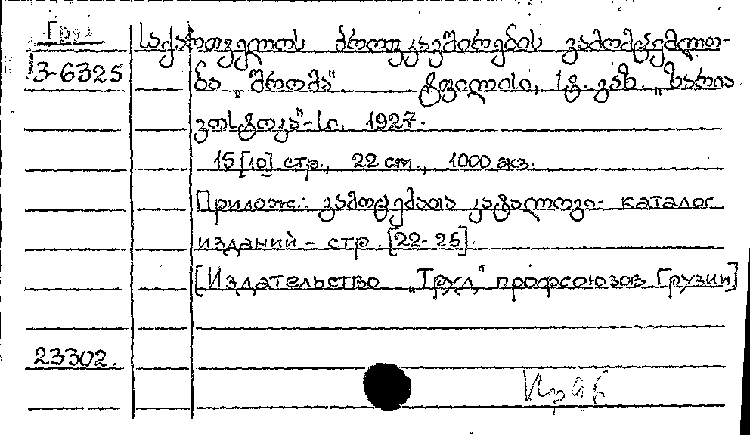 Груз
3-6325
საქართველოს პროფკავშირების გამომცემლო-
ბა „შრომა“ ტფილისი, სტ. გაზ. „ზარია
ვოსტოკა“-სი. 1927.
15 [10] стр., 22 cm., 1000 экз.
Прилож.: გამოცემათა კატალოგი- каталог
изданий - стр. [22-25].
[Издательство „Труд“ профсоюзов Грузии]
23302.